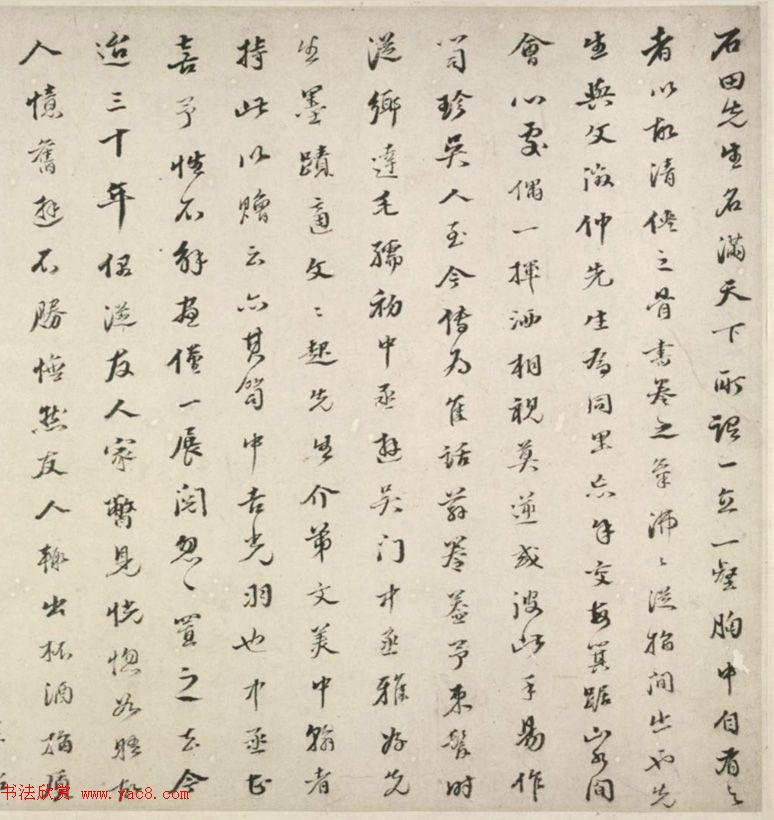 石田先生名滿天下所謂一丘一壑胸中自有之
者以故清俠之骨書卷之氣沸沸從指間出也先
生與文徵仲先生為同里忘年交每箕踞山水間
會心處偶一揮洒相視莫逆或彼此手易作
笥珍吳人至今傳為佳話前卷蓋予束髮時
從鄉達毛孺初中丞遊吳門中丞雅好先
生墨蹟適文文起先生介弟文美中翰者
持此以贈云亦其笥中吉光羽也中丞甚
喜予性不解畫僅一展閱忽忽置之去今
迨三十年偶從友人家瞥見恍惚如晤故
人憶舊遊不勝悵然友人輒出杯酒
书法欣赏 www.yac8.com